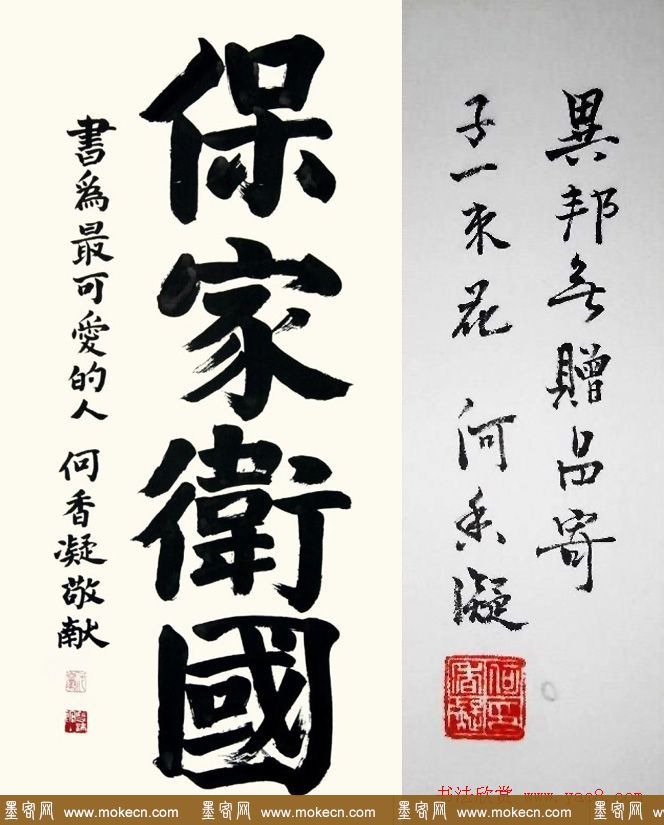 保家衛國
書爲最可愛的人 何香凝敬献
異邦無贈品寄
子一束花 何香凝
何印
香凝
书法欣赏 www.yac8.com
墨客网 www.mokecn.com 墨客网 www.mokecn.com 墨客网 www.mokecn.com 墨客网 w